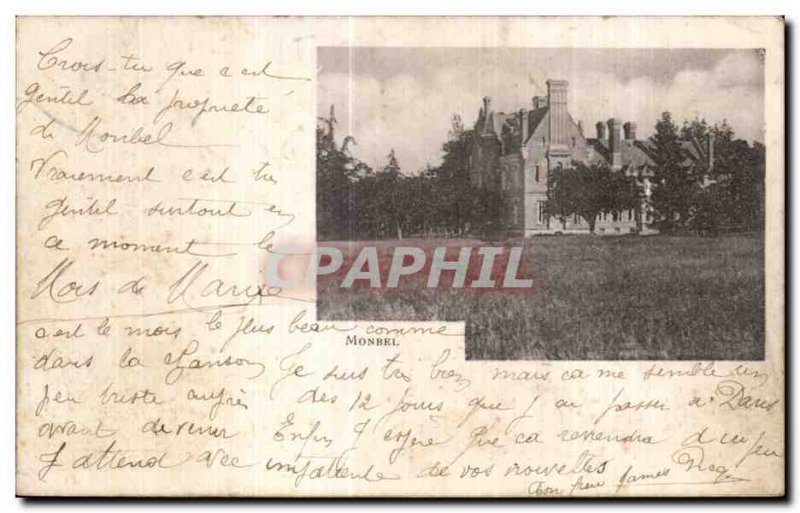 Crois-tu que c'est
gentil la propriété
de Monbel
Vraiement c'est très
gentil surtout en
ce moment le
Mois de Marie
c'est le mois le plus beau comme
MONBEL
dans la chanson Je suis très bien mais ça me semble un
peu triste auprès des 12 jours que j'ai passer a Paris
avant de venir Enfin J'espère que ça reviendra d'un peu
J'attend avec impatiente de vos nouvelles
Ton frère James
CPAPHIL